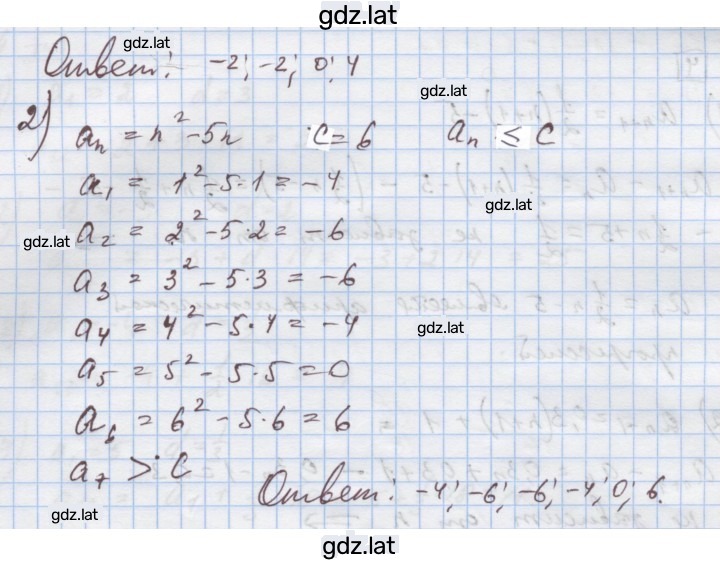 gdz.lat
gdz.lat
Ответ: -2; -2; 0; 4
gdz.lat
2) aₙ = n² - 5n c = 6 aₙ ≤ c
a₁ = 1² - 5·1 = -4
gdz.lat
gdz.lat a₂ = 2² - 5·2 = -6
a₃ = 3² - 5·3 = -6
a₄ = 4² - 5·4 = -4 gdz.lat
a₅ = 5² - 5·5 = 0
a₆ = 6² - 5·6 = 6
a₇ > c
Ответ: -4; -6; -6; -4; 0; 6.
gdz.lat
gdz.lat